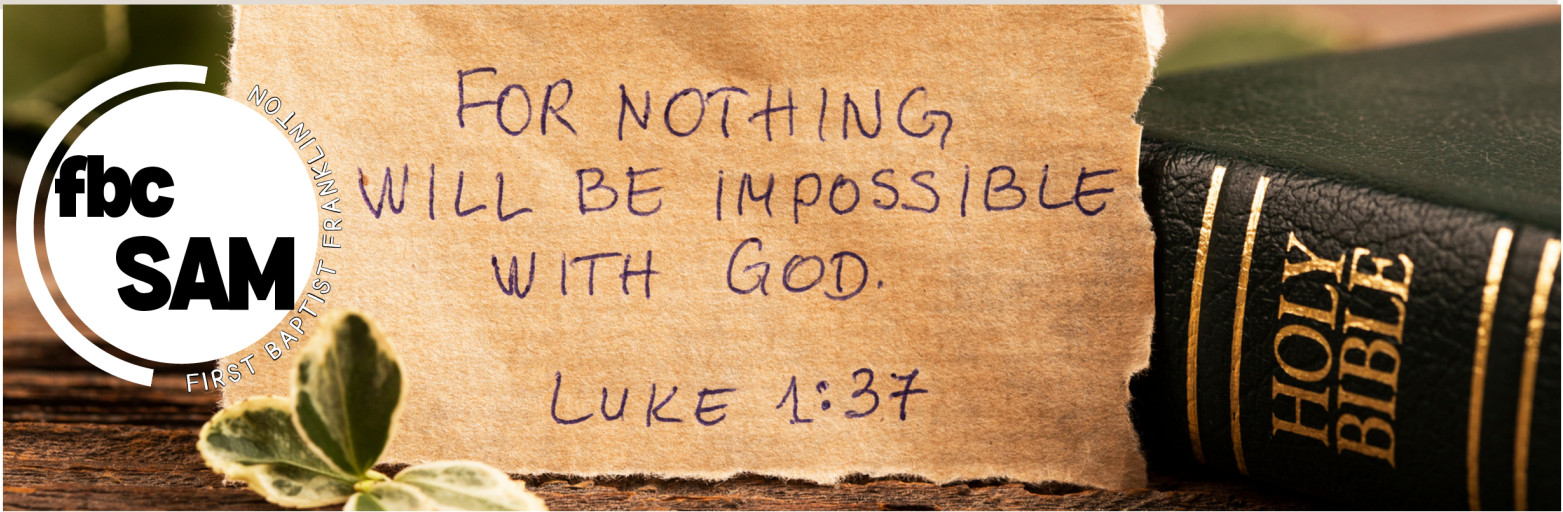 fbc
SAM
FIRST BAPTIST FRANKLINTON
FOR NOTHING
WILL BE IMPOSSIBLE
WITH GOD.
LUKE 1:37
HOLY
BIBLE